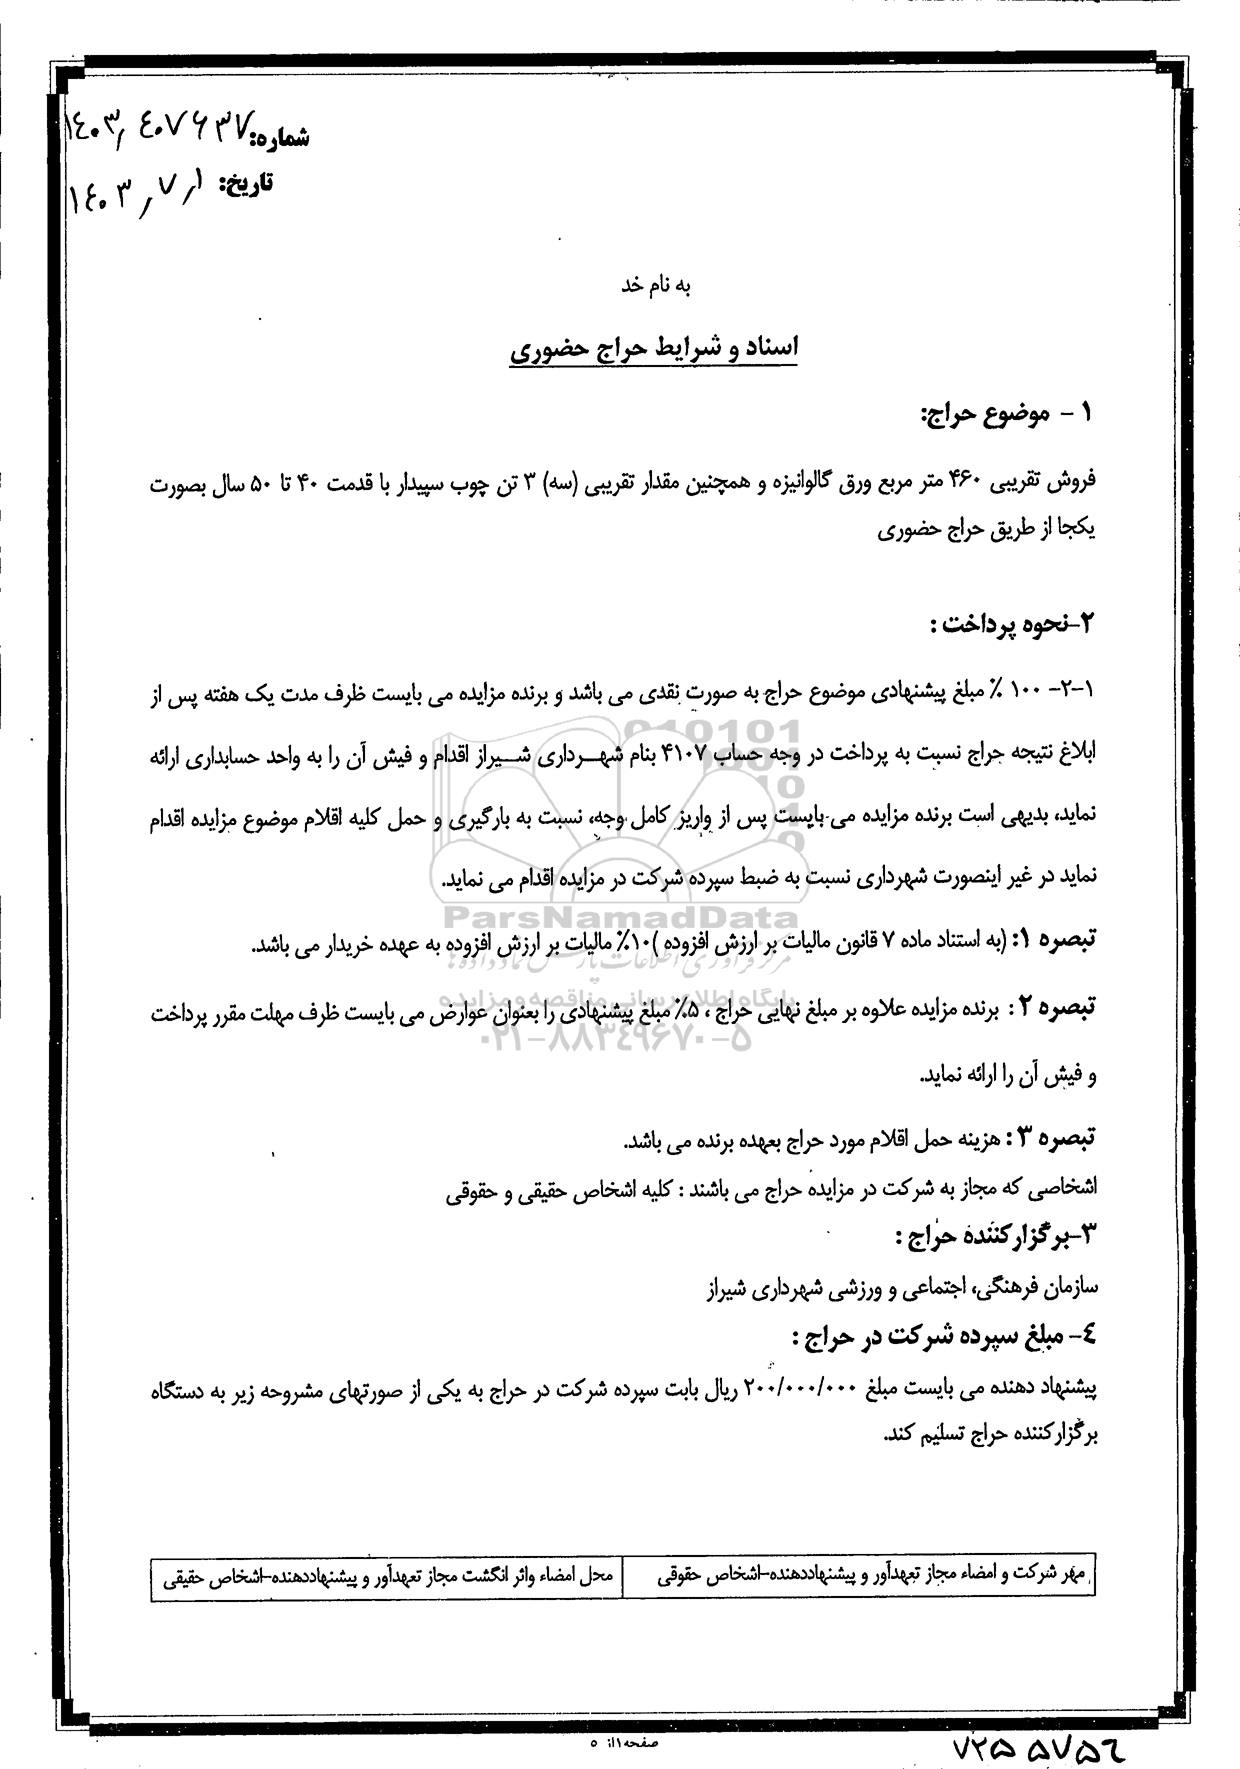 شماره: ۱۴۰۳٫۴۰۷۶۳۷
تاریخ: ۱۴۰۳٫۷٫۱
به نام خد
اسناد و شرایط حراج حضوری
۱ - موضوع حراج:
فروش تقریبی ۴۶۰ متر مربع ورق گالوانیزه و همچنین مقدار تقریبی (سه) ۳ تن چوب سپیدار با قدمت ۴۰ تا ۵۰ سال بصورت
یکجا از طریق حراج حضوری
۲-نحوه پرداخت :
۲-۱- ۱۰۰ % مبلغ پیشنهادی موضوع حراج به صورت نقدی می باشد و برنده مزایده می بایست ظرف مدت یک هفته پس از
ابلاغ نتیجه حراج نسبت به پرداخت در وجه حساب ۴۱۰۷ بنام شهرداری شیراز اقدام و فیش آن را به واحد حسابداری ارائه
نماید، بدیهی است برنده مزایده می بایست پس از واریز کامل وجه، نسبت به بارگیری و حمل کلیه اقلام موضوع مزایده اقدام
نماید در غیر اینصورت شهرداری نسبت به ضبط سپرده شرکت در مزایده اقدام می نماید.
ParsNamadData
تبصره ۱: (به استناد ماده ۷ قانون مالیات بر ارزش افزوده )۱۰٪ مالیات بر ارزش افزوده به عهده خریدار می باشد.
مرکز فرآوری اطلاعات پارس نماد داده ها
پایگاه اطلاع رسانی مناقصه و مزایده
تبصره ۲ : برنده مزایده علاوه بر مبلغ نهایی حراج ، ۵٪ مبلغ پیشنهادی را بعنوان عوارض می بایست ظرف مهلت مقرر پرداخت
۰۲۱-۸۸۳۴۹۶۷۰-۵
و فیش آن را ارائه نماید.
تبصره ۳ : هزینه حمل اقلام مورد حراج بعهده برنده می باشد.
اشخاصی که مجاز به شرکت در مزایده حراج می باشند : کلیه اشخاص حقیقی و حقوقی
۳-برگزارکننده حراج :
سازمان فرهنگی، اجتماعی و ورزشی شهرداری شیراز
٤- مبلغ سپرده شرکت در حراج :
پیشنهاد دهنده می بایست مبلغ ۲۰۰/۰۰۰/۰۰۰ ریال بابت سپرده شرکت در حراج به یکی از صورتهای مشروحه زیر به دستگاه
برگزارکننده حراج تسلیم کند.
مهر شرکت و امضاء مجاز تعهدآور و پیشنهاددهنده-اشخاص حقوقی
محل امضاء واثر انگشت مجاز تعهدآور و پیشنهاددهنده-اشخاص حقیقی
صفحه ۱از ۵